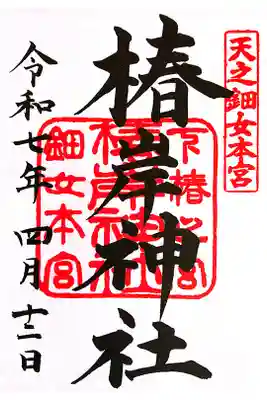 天之鈿女本宮
椿岸神社
椿岸神社
鈿女本宮
令和七年 四月十二日